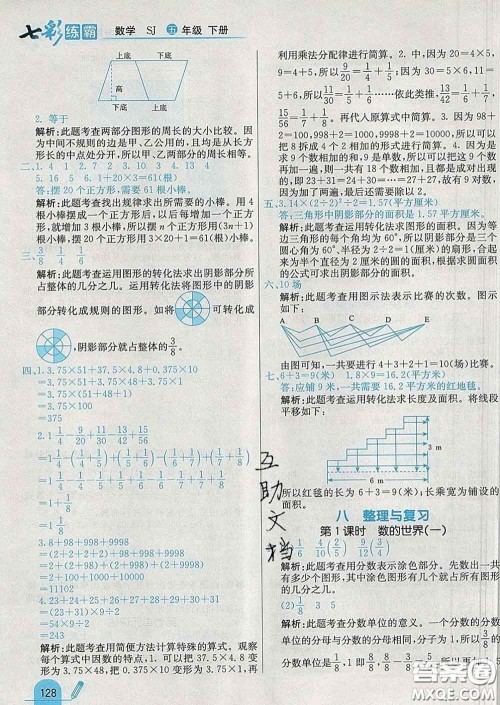 七彩练霸 数学 SJ 五年级 下册
上底 下底
高
下底 上底
2. 等于
解析:此题考查两部分图形的周长的大小比较。因
为中间不规则的边是甲、乙公用的,且均是从长方
形长的中点处分开,所以甲、乙两部分的周长相等。
二、1. 4 1 2 4 2. 2 1 3. 4 1
5. 16 5 6. 1+20×3=61(根)
答:摆20个正方形,需要61根小棒。
解析:此题考查找出规律求出所需的小棒。用4根
小棒摆成一个正方形,以后每增加一个正方形,
就增加3根小棒,所以摆n个正方形用(3n+1)
根小棒,摆20个正方形用3×20+1=61(根)小棒。
三、3/8 1/4 1/6
解析:此题考查运用图形的转化法求出阴影部分所
占整体的几分之几。运用转化法将图形中的阴影
部分转化成规则的图形。如将 可转化成
,阴影部分就占整体的3/8。
四、1. 3.75×51+37.5×4.8+0.375×10
=3.75×51+3.75×48+3.75×1
=3.75×(51+48+1)
=3.75×100
=375
=1 1/8
3. 8+98+998+9998
=(2+2+2+2)+98+998+9998
=(2+98)+(2+998)+(2+9998)+2
=100+1000+10000+2
=11102
4. 23+24+25+26+27+28+29+30+31
=(23+31)×9÷2
=54×9÷2
=243
解析:此题考查用简便方法计算特殊的算式。观察
每个算式中因数的特点,1. 可以把37.5×4.8变
成3.75×48,把0.375×10变成3.75×1,再
利用乘法分配律进行简算。2. 因为20=4×5,
30=5×6,11÷
再代入原算式中简算。3. 因为98+
2=100,998+2=1000,9998+2=10000,所以可以
把8拆成4个2相加的形式进行简算。4. 因为是
求9个数相加的和,9是单数,所以可以把这9个数
再加一遍,则一共有18个数相加,且每两个数相加的
和,即23+31=24+30=……=54,一共有9个54,
因为加了两遍,最后还需要除以2。
五、3.14×(2÷2)²÷2=1.57(平方厘米)
答:三角形中阴影部分的面积是1.57平方厘米。
解析:此题考查运用转化法求图形的面积。因为等
边三角形的每个角均为60°,所以图中的三个扇形
圆心角为60°,半径为2÷2=1(厘米)的扇形,合起来
为半个直径为2厘米的圆的面积。根据求圆面积
的公式可求出阴影部分的面积。
六、10场
解析:此题考查用图示法表示比赛的次数。图示如
下:
由图可知,一共要进行4+3+2+1=10(场)比赛。
七、6+3=9(米) 1.8×9=16.2(平方米)
答:应铺9米,一共需要16.2平方米的红地毯。
解析:此题考查运用转化法求长度及面积。将线段
平移如下:
3 m
6 m
所以红毯的长为6+3=9(米),长乘宽为铺设的
面积。
八 整理与复习
第1课时 数的世界(一)
一、1. (1) 1/6 4/10(2/5) 2/9 4/12(1/3)
解析:此题考查用分数表示涂色部分。先数出一共
有几个小图形,其中涂色图形有几个,涂色的图形
个数占所有图形个数的几分之几。
(2) 1/8 3 5
解析:此题考查分数单位的意义。一个分数的分数
互助文档
128
答案圈
MXQE.COM